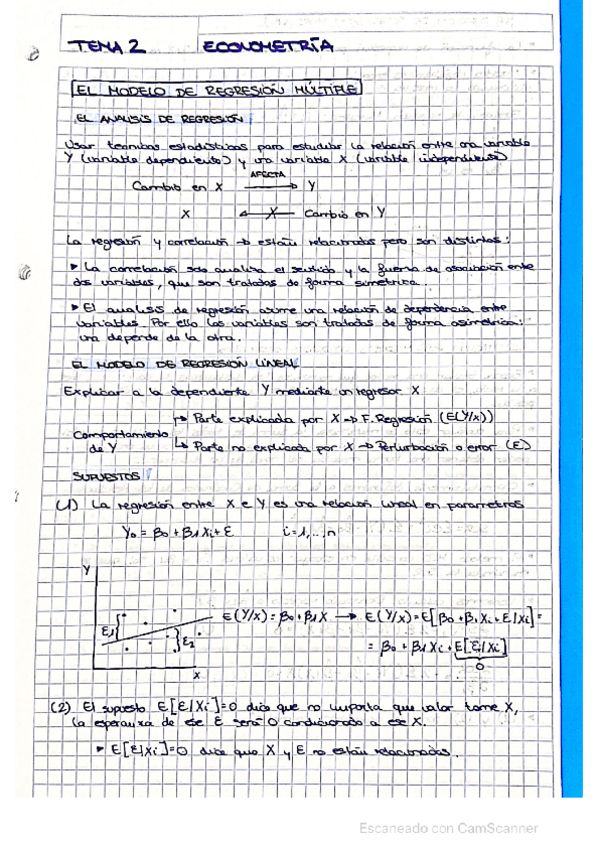 TEMA 2 ECONOMETRÍA
EL MODELO DE REGRESIÓN MÚLTIPLE
EL ANALISIS DE REGRESIÓN
Usar tecnicas estadísticas para estudiar la relación entre una variable
Y (variable dependiente) y una variable X (variable independiente)
AFECTA
Cambio en X → Y
X ← X Cambio en Y
La regresión y correlación → están relacionados pero son distintos:
▸ La correlación solo analiza el sentido y la fuerza de asociación entre
dos variables, que son tratadas de forma simetrica.
▸ El analisis de regresión asume una relación de dependencia entre
variables. Por ello las variables son tratadas de forma asimétrica:
una depende de la otra.
EL MODELO DE REGRESIÓN LINEAL
Explicar a la dependiente Y mediante un regresor X
Comportamiento de Y
→ Parte explicada por X → F. Regresión (E(Y/X))
→ Parte no explicada por X → Perturbación o error (E)
SUPUESTOS
(1) La regresión entre X e Y es una relación lineal en parametros
Y₀ = β₀ + β₁Xi + ε i=1,...,n
Y
ε1
ε2
X
E(Y/X) = β₀ + β₁X → E(Y/X) = E[β₀ + β₁Xi + ε|Xi] =
= β₀ + β₁Xi + E[ε|Xi]
0
(2) El supuesto E[ε|Xi]=0 dice que no importa que valor tome X,
la esperanza de ese ε será 0 condicionado a ese X.
▸ E[ε|Xi]=0 dice que X y E no están relacionados.
Escaneado con CamScanner